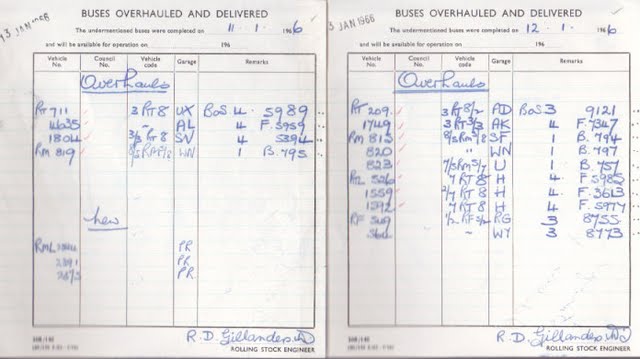 13 JAN 1966
BUSES OVERHAULED AND DELIVERED
The undermentioned buses were completed on 11 . 1 . 1966
and will be available for operation on 196
Vehicle No. Council No. Vehicle code Garage Remarks
Overhauls
RT 711 3 RT 8 UX BoS 4 . 5989
4635 " AL 4 F.5959
1804 3/2 RT 8 SV 4 5394
RM 819 WN 1 B.795
new
RML PR
2391 PR
PR
R.D. Gillanders
ROLLING STOCK ENGINEER
3 JAN 1966
BUSES OVERHAULED AND DELIVERED
The undermentioned buses were completed on 12 . 1 . 1966
and will be available for operation on 196
Vehicle No. Council No. Vehicle code Garage Remarks
Overhauls
RT 209 3 RT 8/2 AD BoS 3 9121
1749 3 RT 3/3 AK 4 F.7347
RM 813 SF 1 B.794
820 " WN 1 B.797
823 7/5 RM 5/7 U 1 B.757
RTL 526 7 RT 8 H 4 F.5985
1559 2/7 RT 8 H 4 F.3613
1592 7 RT 8 H 4 F.5977
RF 509 1/2 RF 5/2 RG 3 8755
WY 3 8773
R.D. Gillanders
ROLLING STOCK ENGINEER